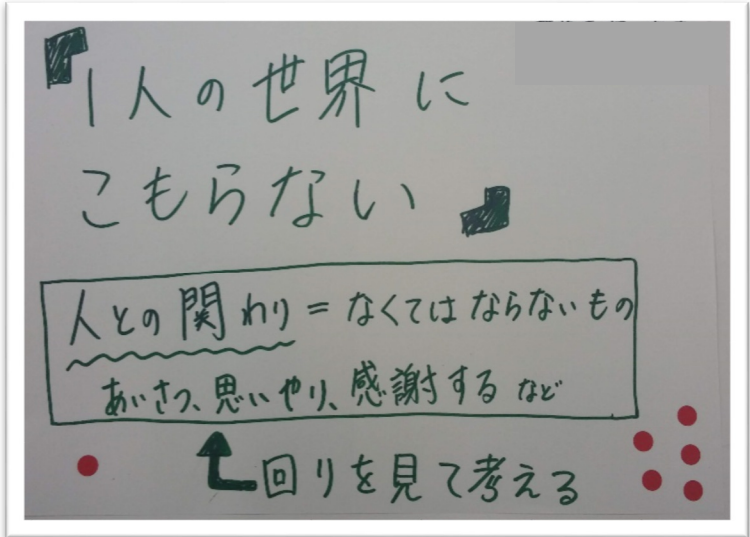 『1人の世界に
こもらない』
人との関わり=なくてはならないもの
あいさつ、思いやり、感謝する など
回りを見て考える